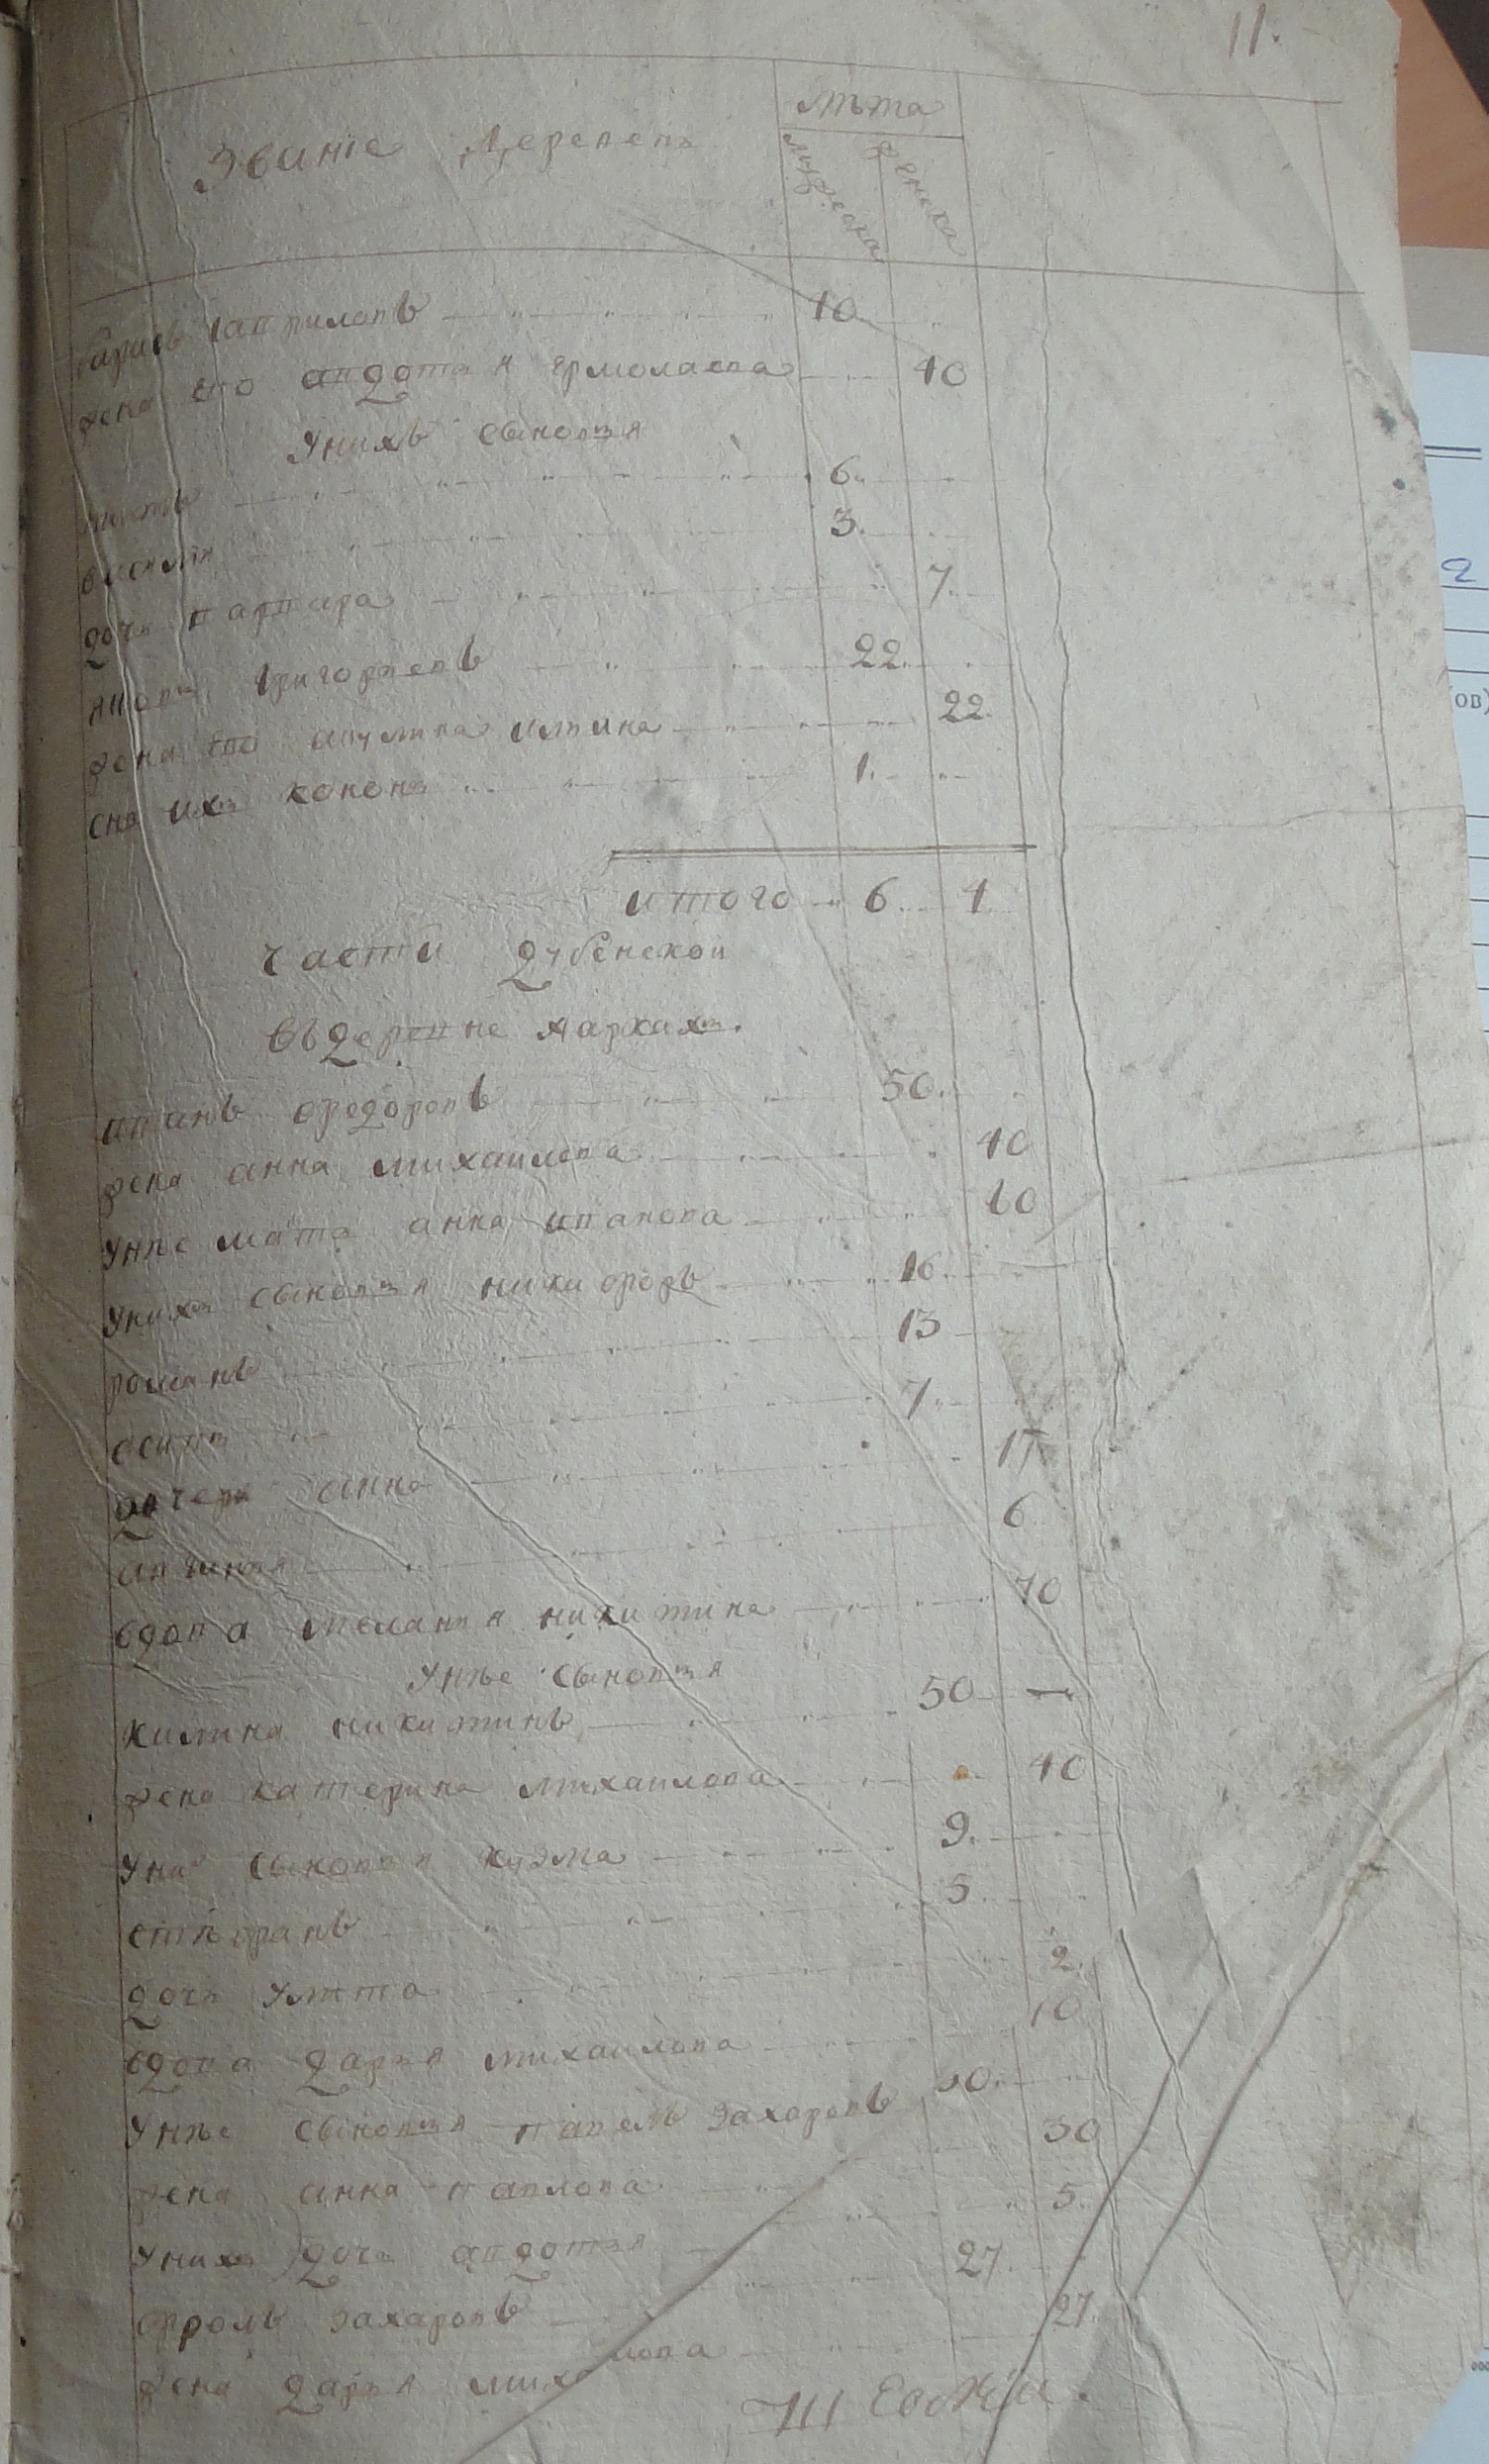 11.
Званіе деревень
лѣта
мужеска
женска
барисъ гавриловъ 40
жена его авдотья ермолаева 40
Унихъ сыновья
титъ 6
василiи 3
дочь варвара 7
яковъ григорьевъ 22
жена его акулина илина 22
снъ ихъ конон 1
итого 6 4
части дубенской
въ деревне харкахъ.
иванъ федоровъ 50
жена анна михаилова 40
унее мать анна иванова
унихъ сыновья никифоръ 16
романъ 13
осипъ 7
дочери анна 17
6
вдова меланья никитина 70
унее сыновья
никитинъ 50
жена катерина михаилова 40
уних сыновья кузма 9
стефанъ 5
дочь улита 2
вдова дарья михаилова
унее сыновья павелъ захаровъ
жена анна павлова 30
унихъ дочь авдотья 5
фролъ захаровъ 27
жена дарья михаилова 27